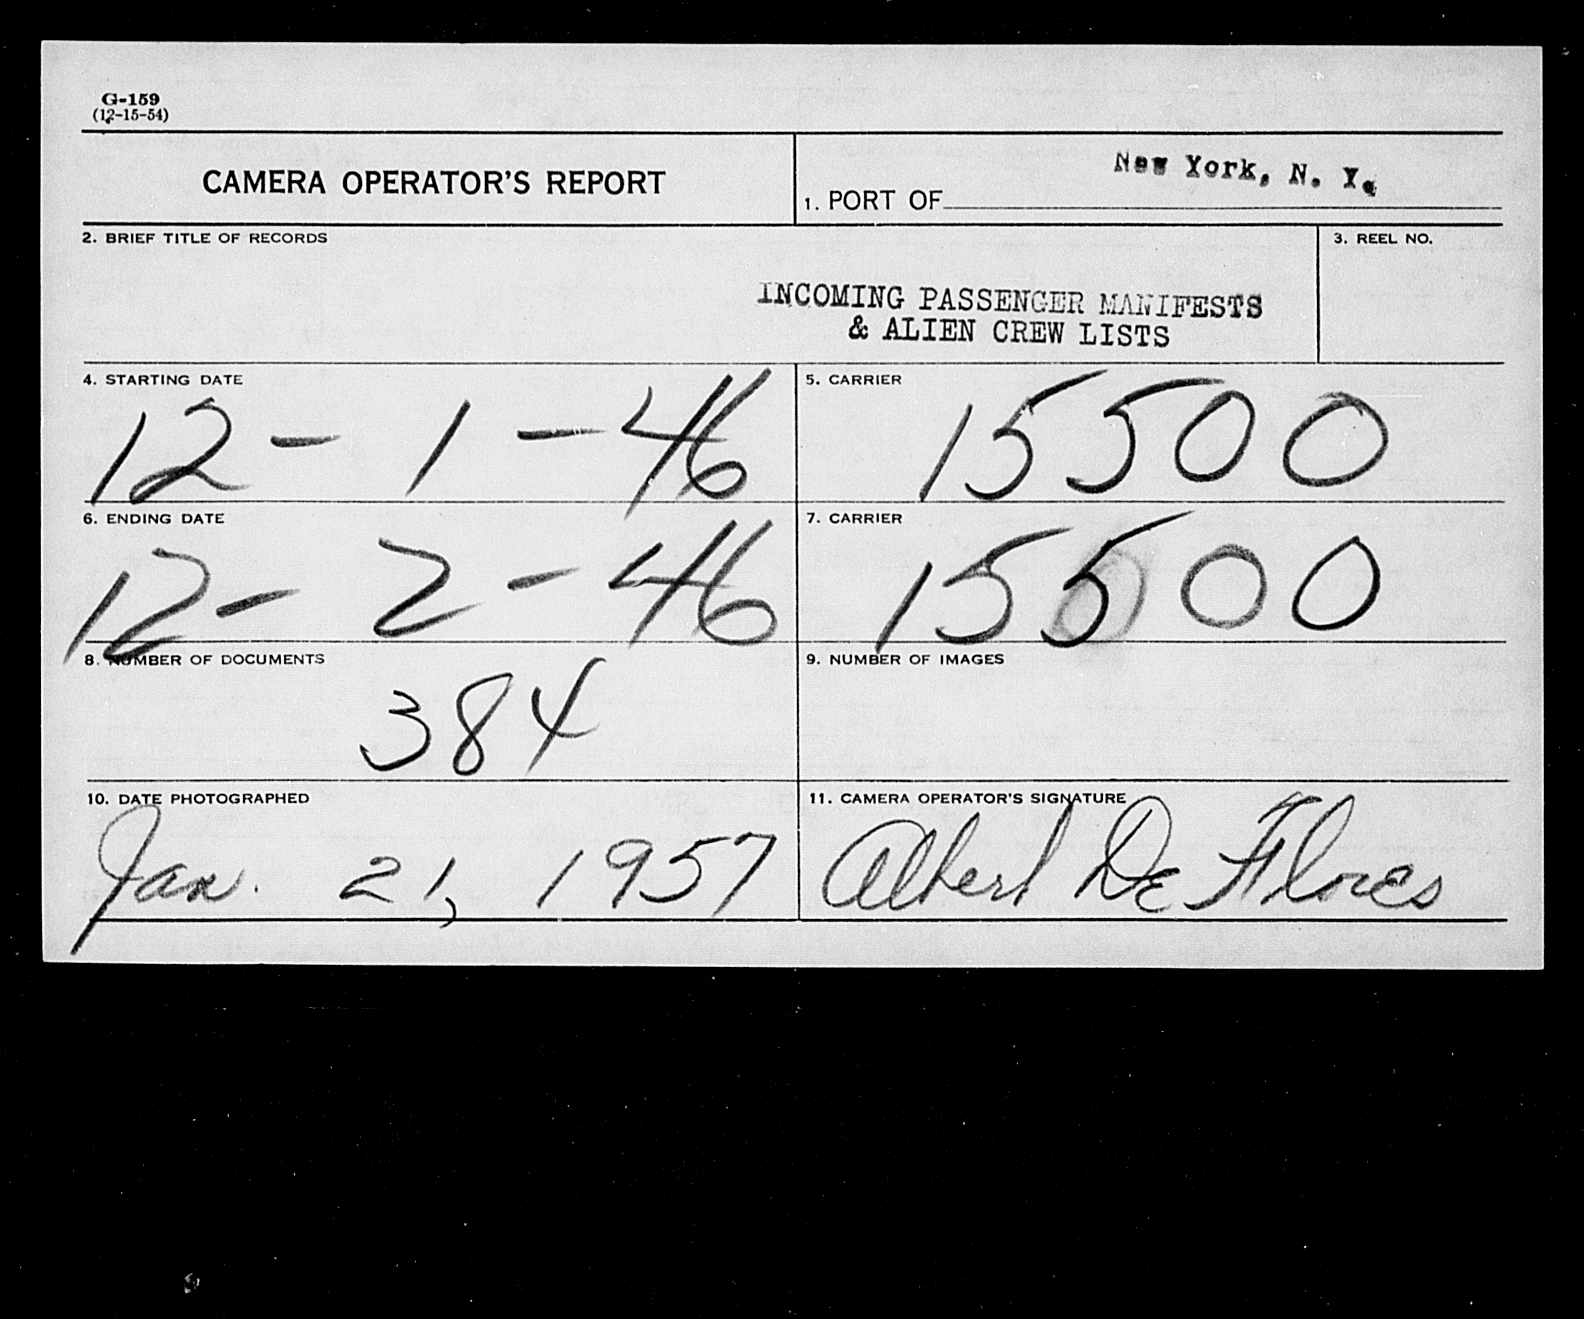 G-159
(12-15-54)
CAMERA OPERATOR'S REPORT
1. PORT OF New York, N. Y.
2. BRIEF TITLE OF RECORDS
INCOMING PASSENGER MANIFESTS
& ALIEN CREW LISTS
3. REEL NO.
4. STARTING DATE
12-1-46
5. CARRIER
15500
6. ENDING DATE
12-2-46
7. CARRIER
15500
8. NUMBER OF DOCUMENTS
384
9. NUMBER OF IMAGES
10. DATE PHOTOGRAPHED
Jan. 21, 1957
11. CAMERA OPERATOR'S SIGNATURE
Albert De Flores